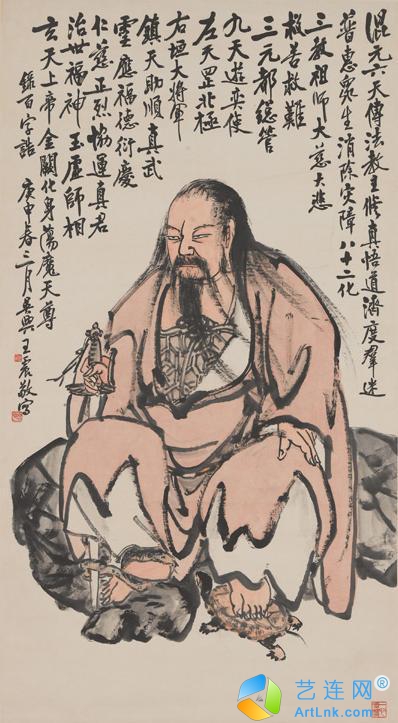 混元六天傳法教主修真悟道濟度羣迷
普惠眾生消除災障八十二化
三教祖師大慈大悲
救苦救難
三元都總管
九天遊奕使
左天罡北極
右垣大將軍
鎮天助順真武
靈應福德衍慶
仁慈正烈協運真君
治世福神玉虛師相
玄天上帝金闕化身蕩魔天尊
錄百字誥 庚申春三月吳興王震敬寫
艺连网®
ArtLnk.com